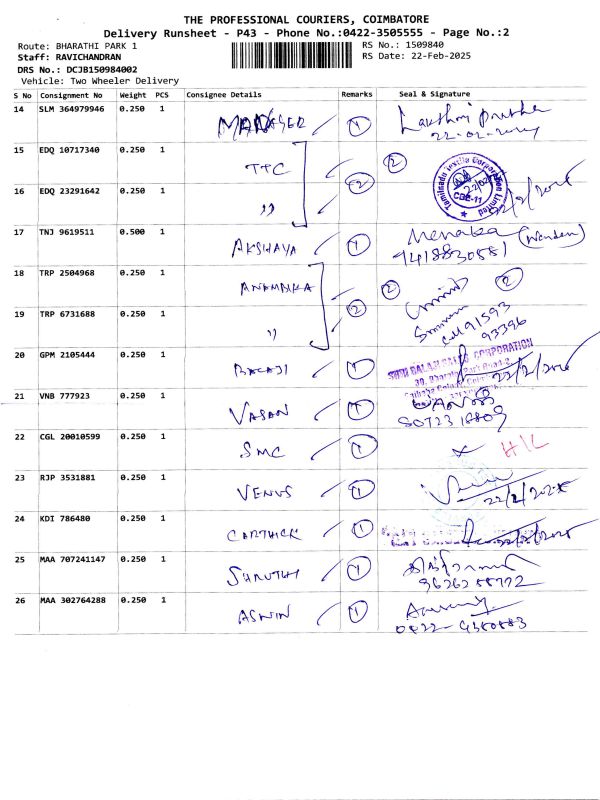 THE PROFESSIONAL COURIERS, COIMBATORE
Delivery Runsheet - P43 - Phone No.:0422-3505555 - Page No.:2
Route: BHARATHI PARK 1 RS No.: 1509840
Staff: RAVICHANDRAN RS Date: 22-Feb-2025
DRS No.: DCJB150984002
Vehicle: Two Wheeler Delivery
S No Consignment No Weight PCS Consignee Details Remarks Seal & Signature
14 SLM 364979946 0.250 1 MANAGER 1
15 EDQ 10717340 0.250 1 TTC 2 2
16 EDQ 23291642 0.250 1 "
Tamilnadu Textile Corporation Limited
CBE-11
17 TNJ 9619511 0.500 1 AKSHAYA 1 Menaka
9418830581
18 TRP 2504968 0.250 1 ANAMIKA 2 2 2
19 TRP 6731688 0.250 1 "
91593
93396
20 GPM 2105444 0.250 1 BALAJI 1 SHRI BALAJI SALES CORPORATION
22/2/2025
21 VNB 777923 0.250 1 VASAN 1
22 CGL 20010599 0.250 1 SMC x H/L
23 RJP 3531881 0.250 1 VENUS 1 22/2/2025
24 KDI 786480 0.250 1 CARTHICK 1
25 MAA 707241147 0.250 1 SHRUTHI 1
26 MAA 302764288 0.250 1 ASWIN 1